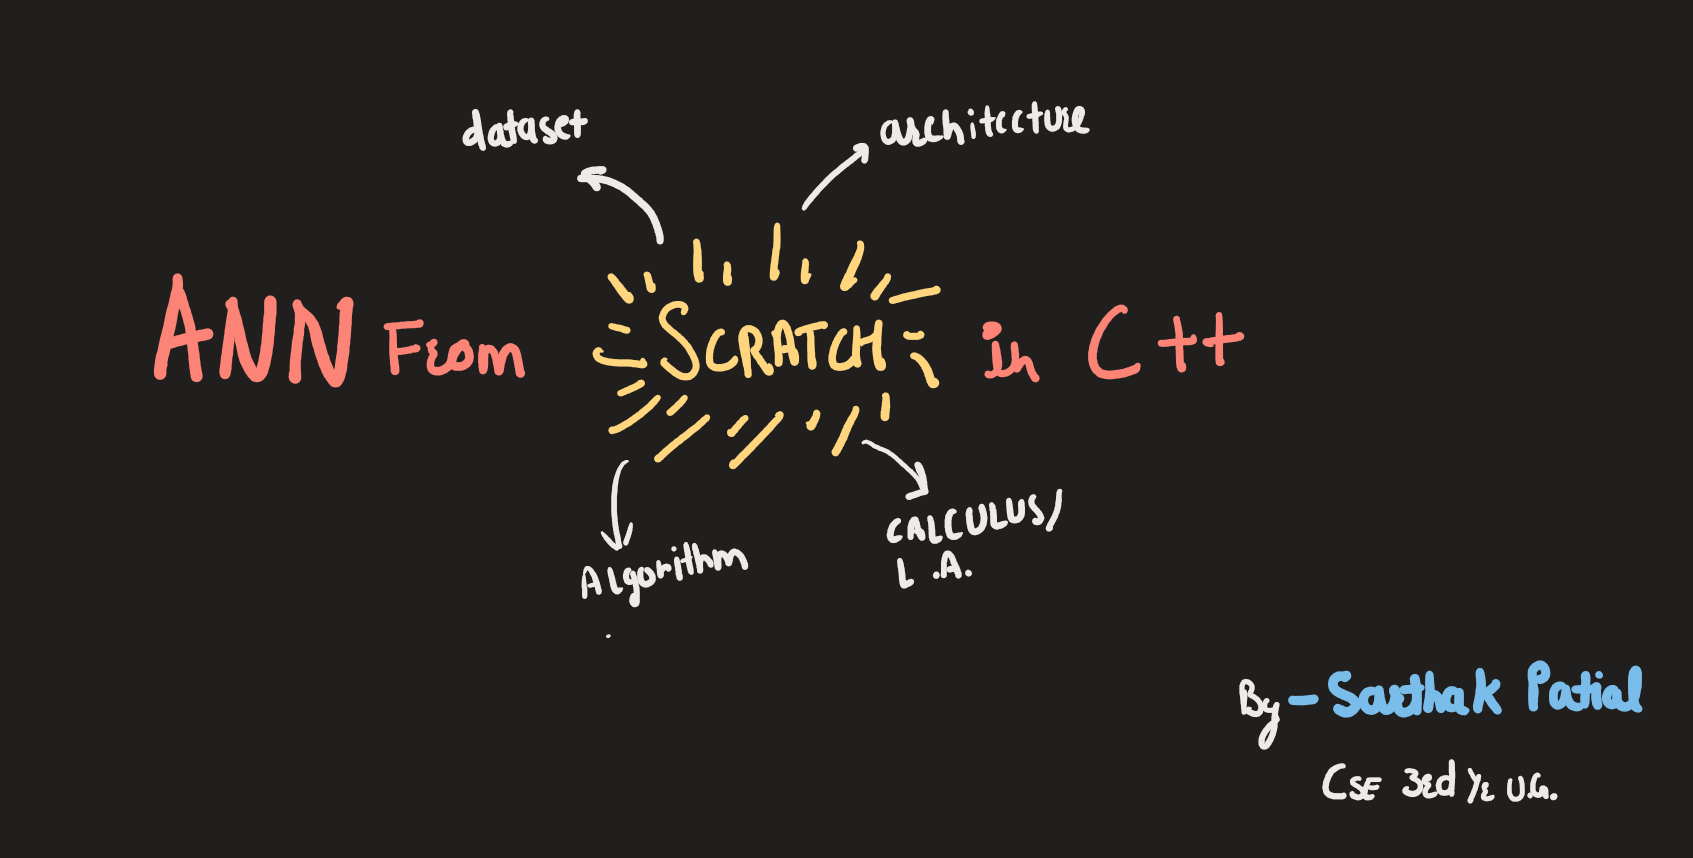 dataset
architecture
ANN From SCRATCH in C++
Algorithm
CALCULUS/
L.A.
By - Sarthak Patial
CSE 3rd Yr U.G.